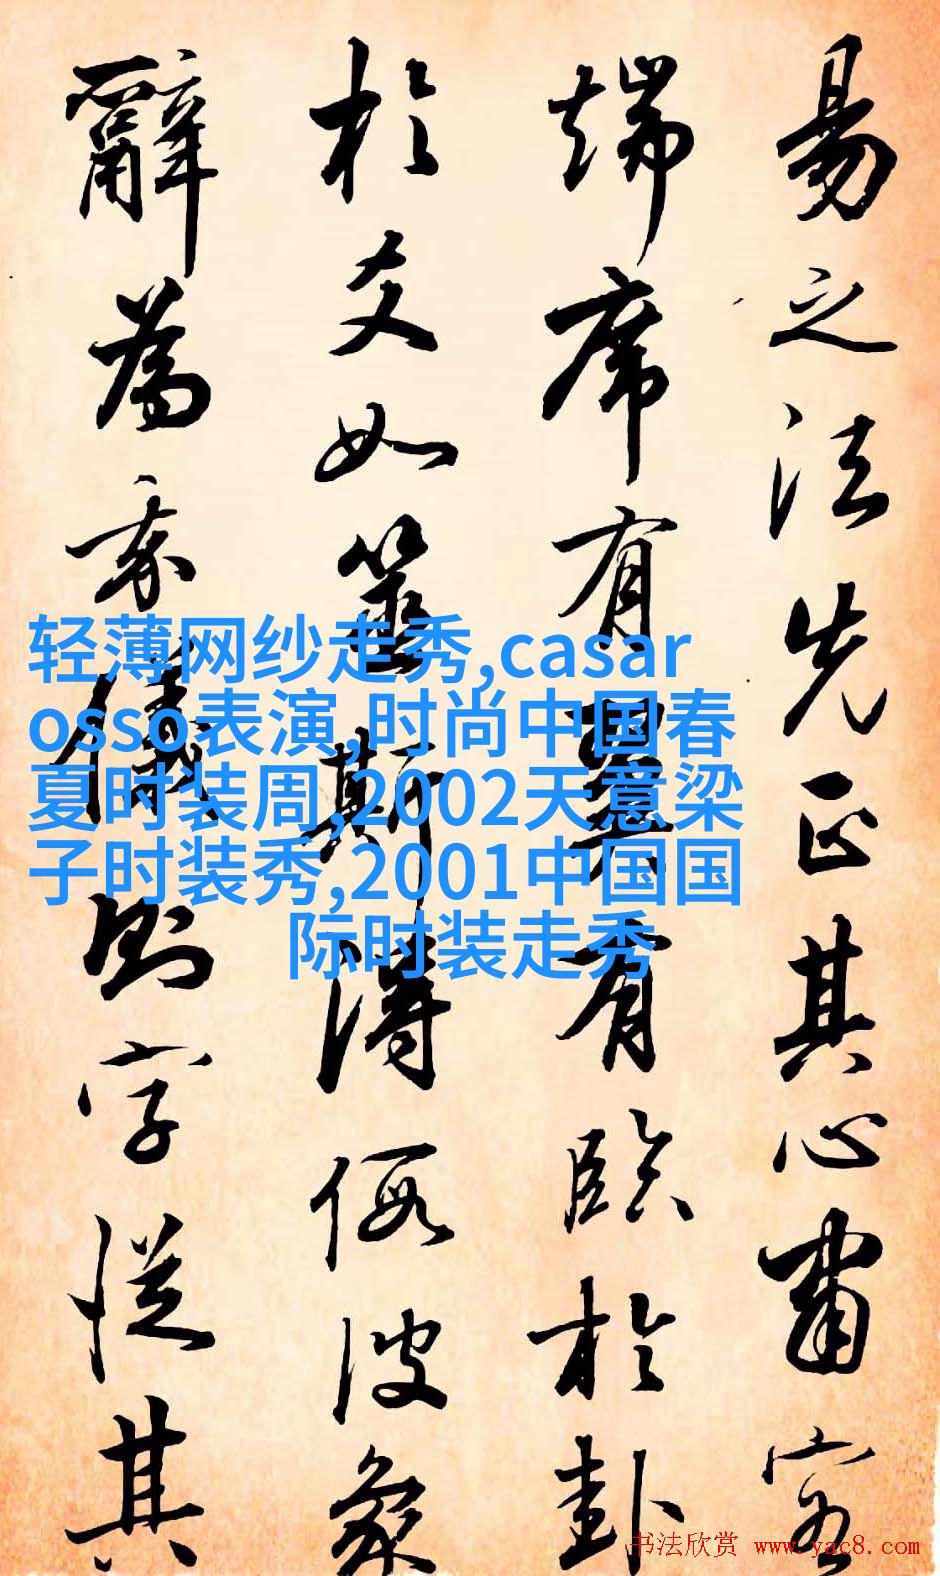 易之法先正其心肅容
端席有翼有臨於卦
於爻如筮斯得假彼象
辭為我儀則字從其
轻薄网纱走秀,casar
osso表演,时尚中国春
夏时装周,2002天意梁
子时装秀,2001中国国
际时装走秀
书法欣赏 www.yac8.com